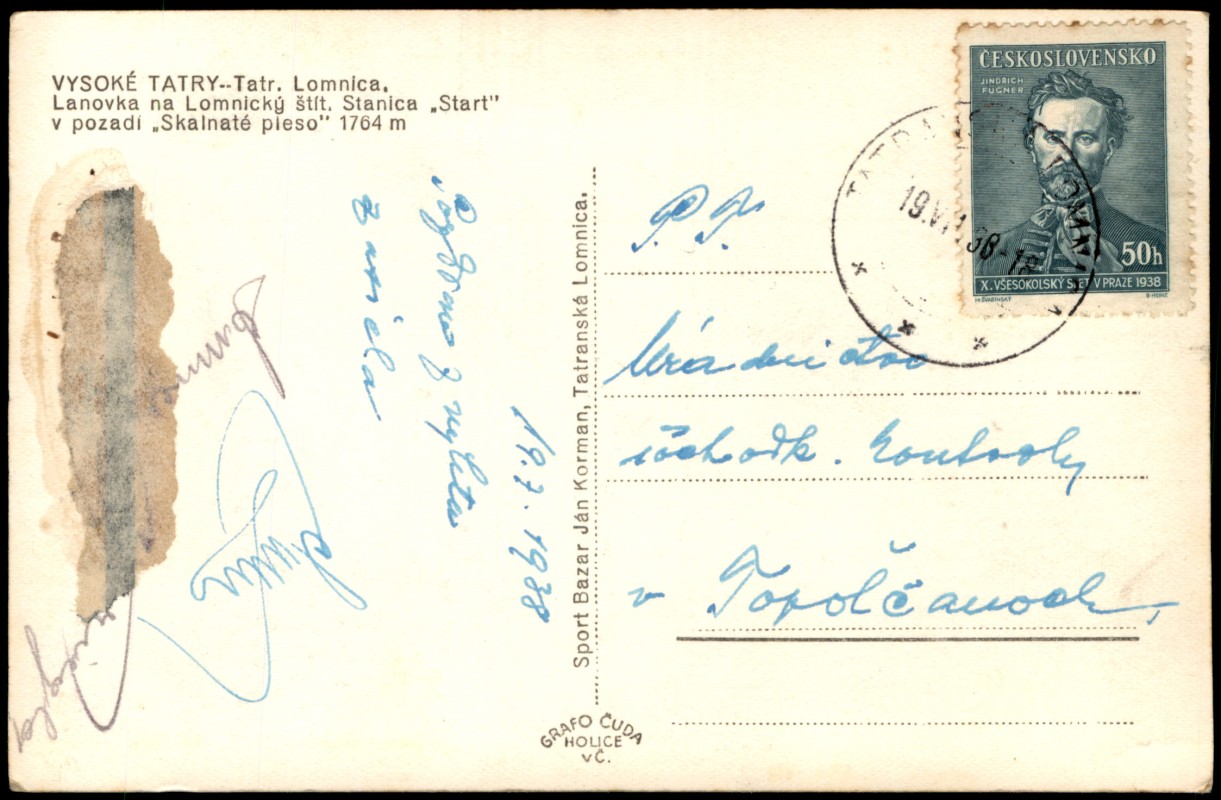 VYSOKÉ TATRY--Tatr. Lomnica.
Lanovka na Lomnický štít. Stanica „Start"
v pozadí „Skalnaté pleso" 1764 m
ČESKOSLOVENSKO
JINDŘICH
FÜGNER
50h
X. VŠESOKOLSKÝ SLET V PRAZE 1938
M. ŠVABINSKÝ
B. HEINZ
TATRANSKÁ LOMNICA
19.VII.38-18
19.7.1938
z výletu
Sport Bazar Ján Korman, Tatranská Lomnica.
P. T.
Úradníctvo
dôchodk. kontroly
v Topoľčanoch
GRAFO ČUDA
HOLICE
v Č.